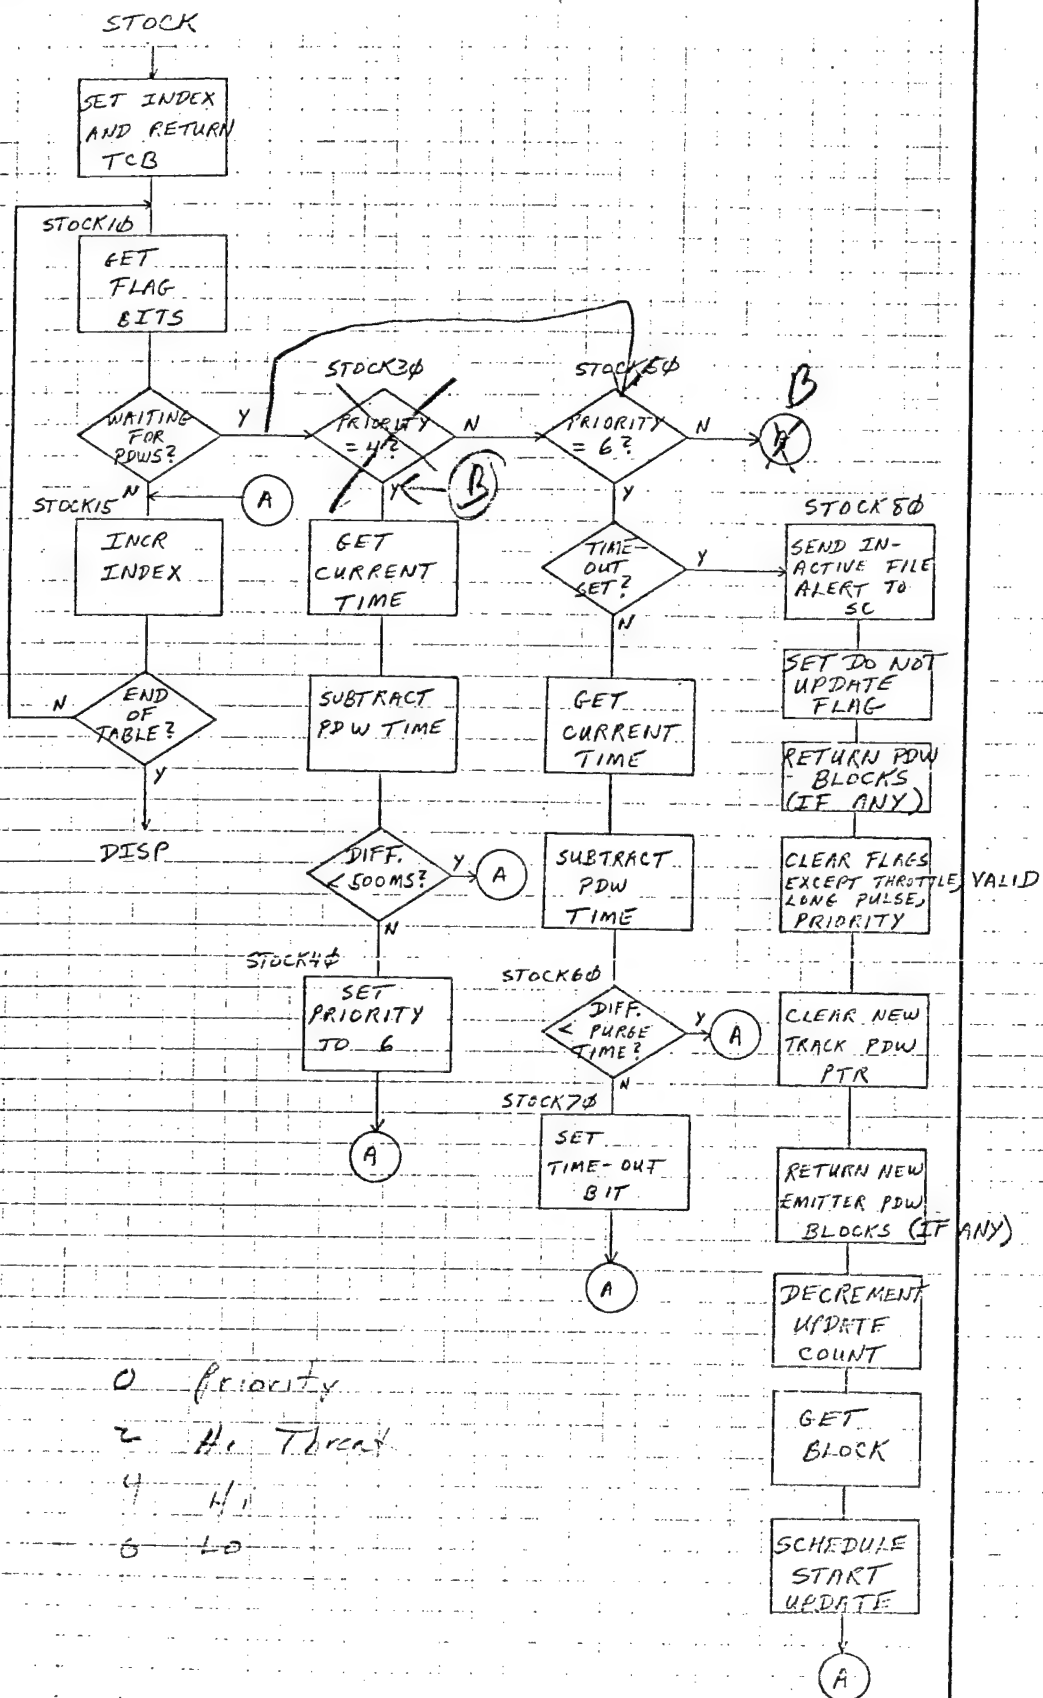 STOCK
SET INDEX
AND RETURN
TCB
STOCK1Ø
GET
FLAG
BITS
WAITING
FOR
PDWS?
Y
N
A
STOCK15
INCR
INDEX
END
OF
TABLE?
N
Y
DISP
STOCK3Ø
PRIORITY
= 4?
N
Y
B
GET
CURRENT
TIME
SUBTRACT
PDW TIME
DIFF.
< 500MS?
Y
A
N
STOCK4Ø
SET
PRIORITY
TO 6
A
STOCK5Ø
PRIORITY
= 6?
N
B
A
Y
TIME-
OUT
SET?
Y
N
GET
CURRENT
TIME
SUBTRACT
PDW
TIME
STOCK6Ø
DIFF.
< PURGE
TIME?
Y
A
N
STOCK7Ø
SET
TIME-OUT
BIT
A
STOCK8Ø
SEND IN-
ACTIVE FILE
ALERT TO
SC
SET DO NOT
UPDATE
FLAG
RETURN PDW
BLOCKS
(IF ANY)
CLEAR FLAGS
EXCEPT THROTTLE, VALID
LONG PULSE,
PRIORITY
CLEAR NEW
TRACK PDW
PTR
RETURN NEW
EMITTER PDW
BLOCKS (IF ANY)
DECREMENT
UPDATE
COUNT
GET
BLOCK
SCHEDULE
START
UPDATE
A
0 Priority
2 Hi Threat
4 Hi
6 Lo